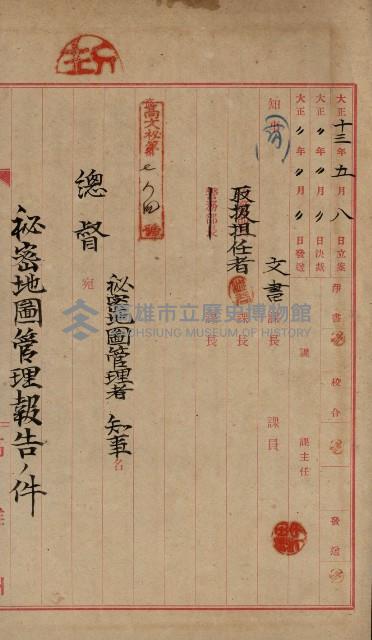 大正十三年五月八日立案
大正〃年〃月〃日決裁
大正〃年〃月〃日發送
淨書
校合
發送
課
課主任
知事
文書課長
課員
取扱担任者
課長
警務部長
課長
高文秘第七八四號
總督宛
秘密地圖管理者 知事名
秘密地圖管理報告ノ件
高雄市立歷史博物館
KAOHSIUNG MUSEUM OF HISTORY
高雄州